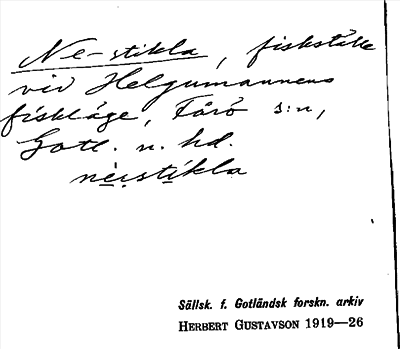 Ne-stikla, fiskställe
vid Helgumannens
fiskläge, Fårö s:n,
Gotl. n. hd.
nèi̯stikla
Sällsk. f. Gotländsk forskn. arkiv
HERBERT GUSTAVSON 1919—26